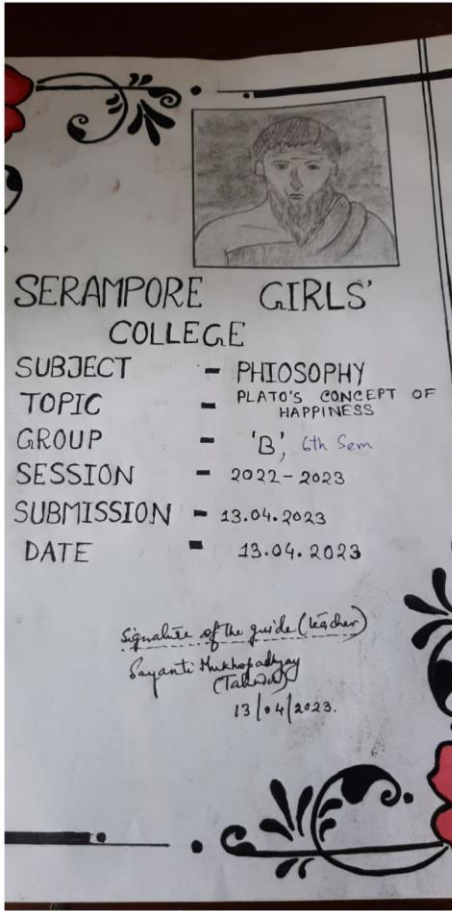 SERAMPORE GIRLS'
COLLEGE
SUBJECT - PHIOSOPHY
TOPIC - PLATO'S CONCEPT OF
HAPPINESS
GROUP - 'B', 6th Sem
SESSION - 2022-2023
SUBMISSION - 13.04.2023
DATE - 13.04.2023
Signature of the guide (teacher)
Sayanti Mukhopadhyay
13/04/2023.